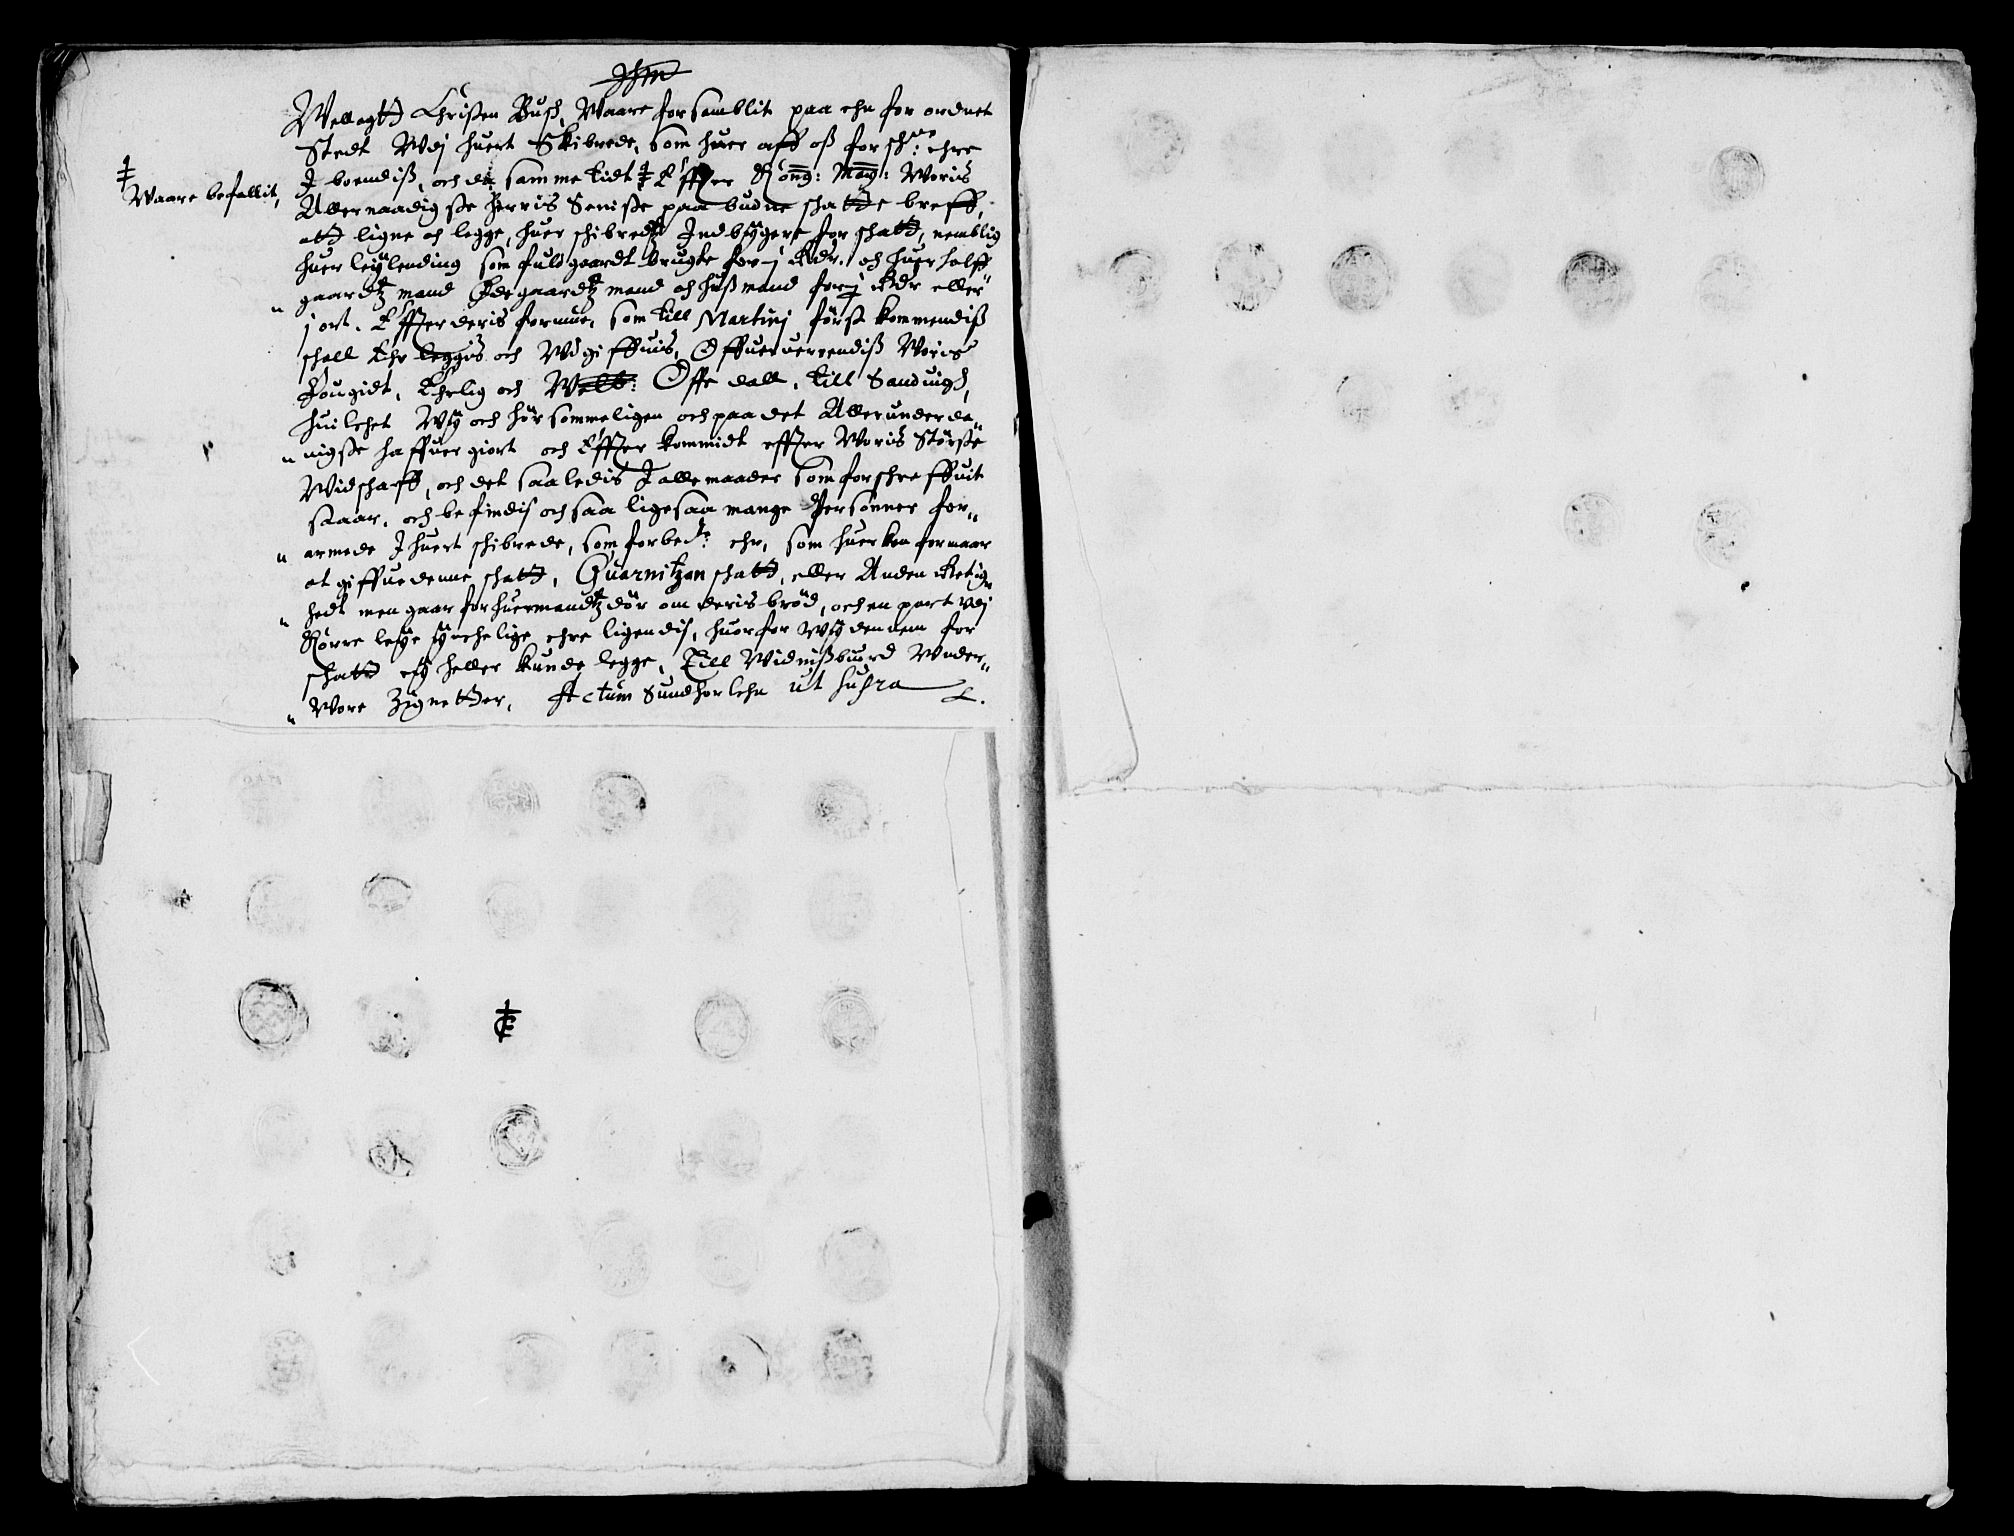 Wellagtt Christen Busch, Waare forsamblit paa ehn for ordnet
Stedt Wdj huert Skibrede, som huer aff oß forsch:ne ehre
I boendiß, och da samme tidt ‡ Effter Kong: May: Woris
‡
Waare befallit,
Allernaadigste Herris Seniste paa budne schatte breff,
att ligne och legge, huer schibredtz Indbyggere for schatt, nemblig
huer leylending som fuld gaardt brugte for j Rdr. och huer halff
gaardtz mand Ødegaardtz mand och hußmand for j Rdr eller
j ort. Effter deris formue, som till Martinj först kommendiß
schall Ehr leggis och Wdgiffuis, Offueruerendiß Woris
Fougidt, Ehrlig och Welb: Offe dall, till Sanduigh,
huilchet Wy och hörsommeligen och paa det Allerunderda-
nigste haffuer giort och Effter kommidt effter Woris Störste
Widschaff, och det saaledis I alle maader som forschreffuit
staar, och befindis och saa ligesaa mange Personner for-
armede I huert schibrede, som forbed:te ehr, som huerken formaar
at giffue denne schatt, Guarnitzon schatt, eller Anden Retig-
hedt men gaar for huermandtz dör om deris bröd, och en part vdj
Körre lesye syuchelige ehre ligendis, huorfor Wy dennem for
schatt ey heller kunde legge, Till Widnißbuurd Wnder-
Wore Zignetter, Actum Sundhorlehn ut supra